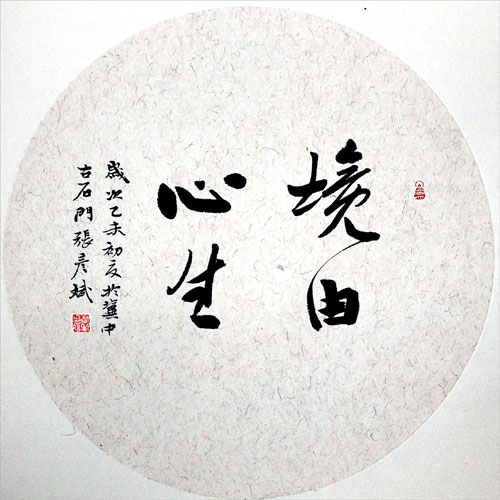 境由
心生
歲次乙未初夏於冀中
古石門張彥斌